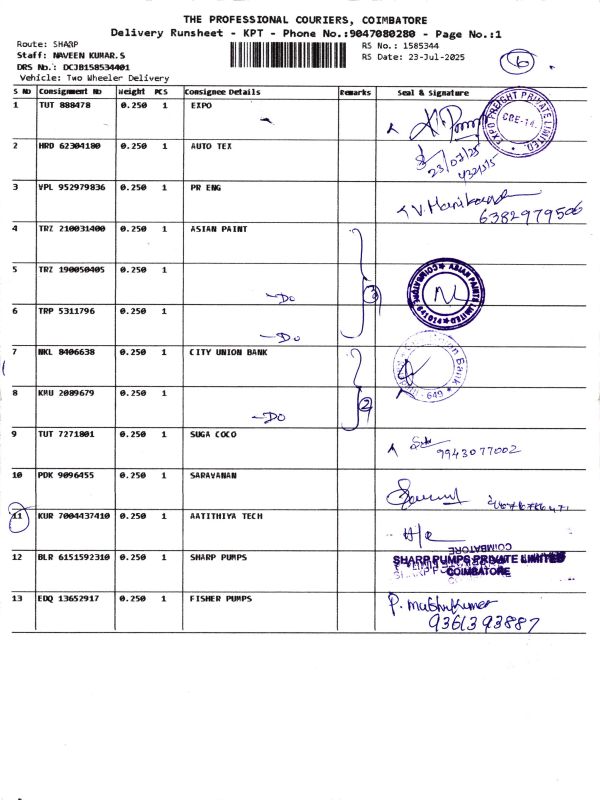 THE PROFESSIONAL COURIERS, COIMBATORE
Delivery Runsheet - KPT - Phone No.:9047080280 - Page No.:1
Route: SHARP
Staff: NAVEEN KUMAR.S
DRS No.: DCJB158534401
Vehicle: Two Wheeler Delivery
RS No.: 1585344
RS Date: 23-Jul-2025
6
S No Consignment No Weight PCS Consignee Details Remarks Seal & Signature
1 TUT 888478 0.250 1 EXPO
EXPO FREIGHT PRIVATE LIMITED
CBE-14
2 HRD 62304180 0.250 1 AUTO TEX
23/07/25
3 VPL 952979836 0.250 1 PR ENG
V. Manikanda
6382979506
4 TRZ 210031400 0.250 1 ASIAN PAINT
5 TRZ 190050405 0.250 1
-Do
3
ASIAN PAINTS LIMITED COIMBATORE 641014
6 TRP 5311796 0.250 1
-Do
7 NKL 8406638 0.250 1 CITY UNION BANK
Union Bank
649
8 KMU 2089679 0.250 1
-Do
2
9 TUT 7271801 0.250 1 SUGA COCO
9943077002
10 PDK 9096455 0.250 1 SARAVANAN
11 KUR 7004437410 0.250 1 AATITHIYA TECH
12 BLR 6151592310 0.250 1 SHARP PUMPS
SHARP PUMPS PRIVATE LIMITED
COIMBATORE
13 EDQ 13652917 0.250 1 FISHER PUMPS
P. Muthukumar
9361393887